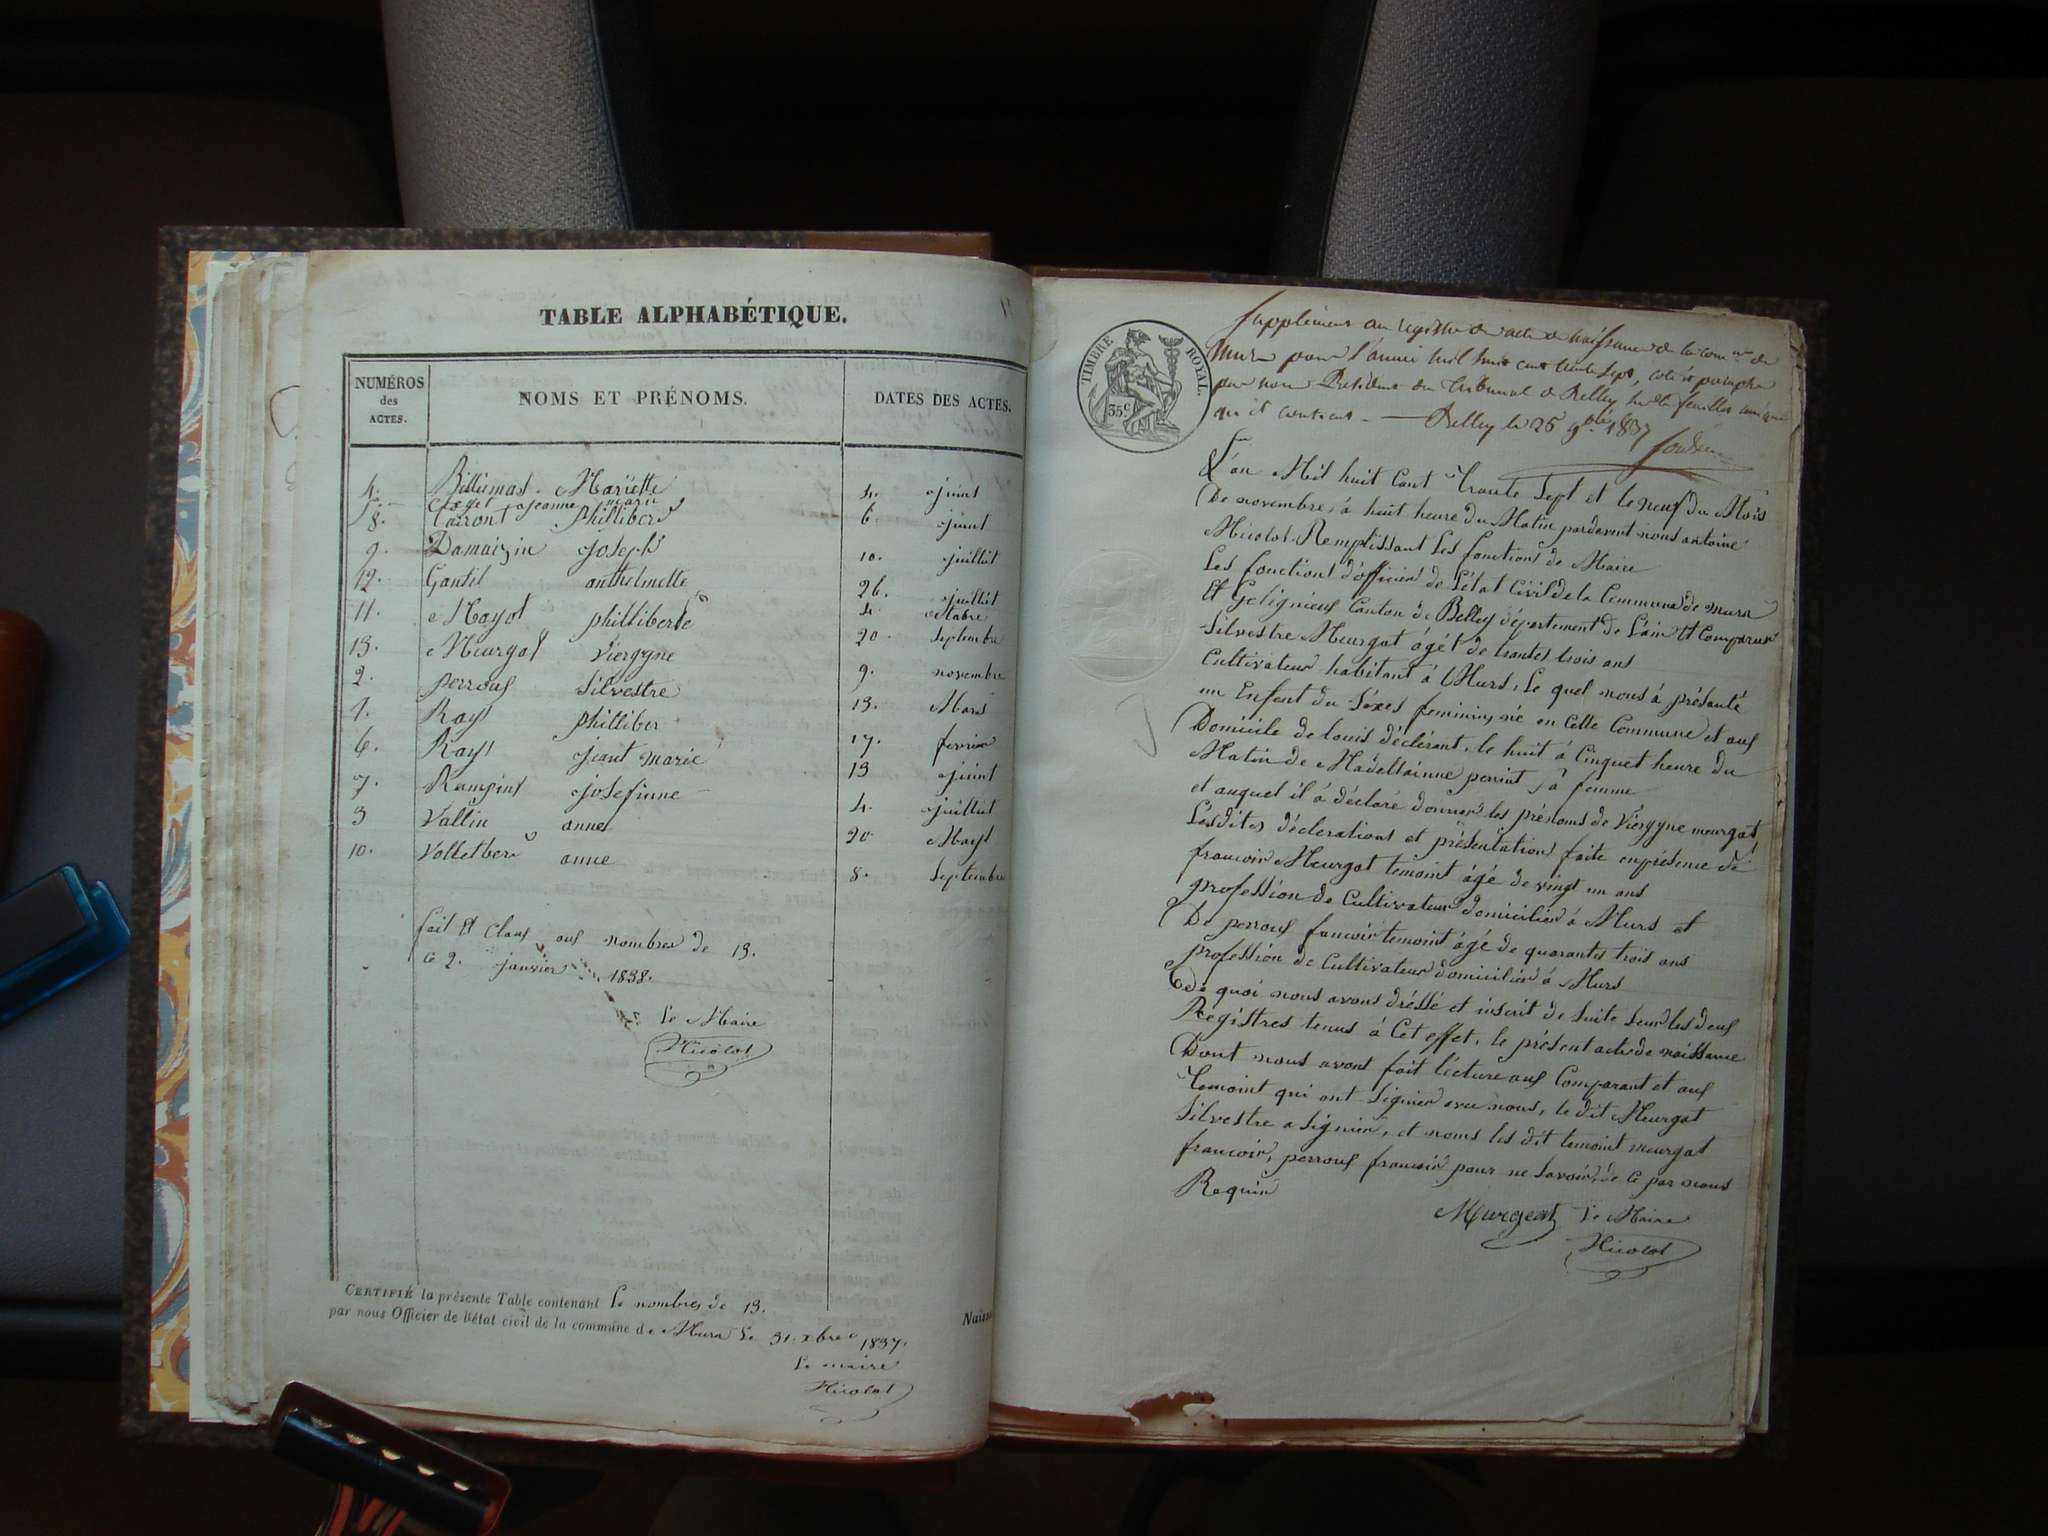 TABLE ALPHABÉTIQUE.
NUMÉROS des ACTES.
NOMS ET PRÉNOMS.
DATES DES ACTES.
4. Billiemas Mariette 4. juint
5. Claget jeanne marie
8. Cairont phillibert 6. juint
9. Damaizin joseph 10. juillit
12. Gantil anthelmette 26. juillit
11. Mayot philliberte 4. octobre
13. Meurgat Viergyne 20. septembre
2. perrous Silvestre 9. novembre
1. Rays philliber 13. Mars
6. Rays jeant marie 17. fevrier
7. Rampint josefinne 13 juint
3 Vallin annes 4. juillit
10. Volletbert anne 20. Mays
8. septembre
fait Et Claus aus nombres de 13.
Ce 2. janvier 1838.
Le Maire
Nicolat
CERTIFIÉ la présente Table contenant Le nombres de 13.
par nous Officier de l'état civil de la commune de Murs Le 31. xbre 1837.
Le maire
Nicolat
Naiss
TIMBRE ROYAL.
35 c
Supplément au registre des actes de naissance de la com ne de
Murs pour l'année mil huit cent trente sept, coté et paraphé
par nous Président du tribunal de Belley sur la feuille unique
qu'il contient. — Belley le 25 9bre 1837
L'an Mil huit Cent Trante Sept et le neuf du Mois
De novembre, à huit heure du Matin pardevent nous antoine
Nicolat Remplissant Les fonctions de Maire
Les fonctions d'officier de L'état Civil de la Commune de Murs
Et Gelignieus Canton de Belley département de L'ain Et Comparus
Silvestre Meurgat âgét de trantes trois ans
Cultivateur habitant à Murs, Le quel nous à présanté
un Enfent du Séxes feminin, né en Cette Commune et aus
Domicile de louis déclérant, le huit à Cinquet heure du
Matin de Madellainne perrint, sà femme
et auquel il à déclaré donner les prénoms de Viergyne meurgat
Lesdites déclerations et présentation faite enprésence de
francoir Meurgat temoint âgé de vingt un ans
profession de Cultivateur domicilier à Murs et
De perrous francoir temoint âgé de quarantes trois ans
profession de Cultivateur domicilier à Murs
De quoi nous avons dréssé et inscrit de Suite Seur les deus
Registres tenus à Cet effet, le présent acte de naissance
Dont nous avons fait lécture aus Comparant et aus
Temoint qui ont Signier avec nous, le dit Meurgat
Silvestre a Signier, et noms les dit temoint meurgat
francoir, perrous francoir pour ne Savoir, de Ce par nous
Requir
Murgeat Le Maire
Nicolat